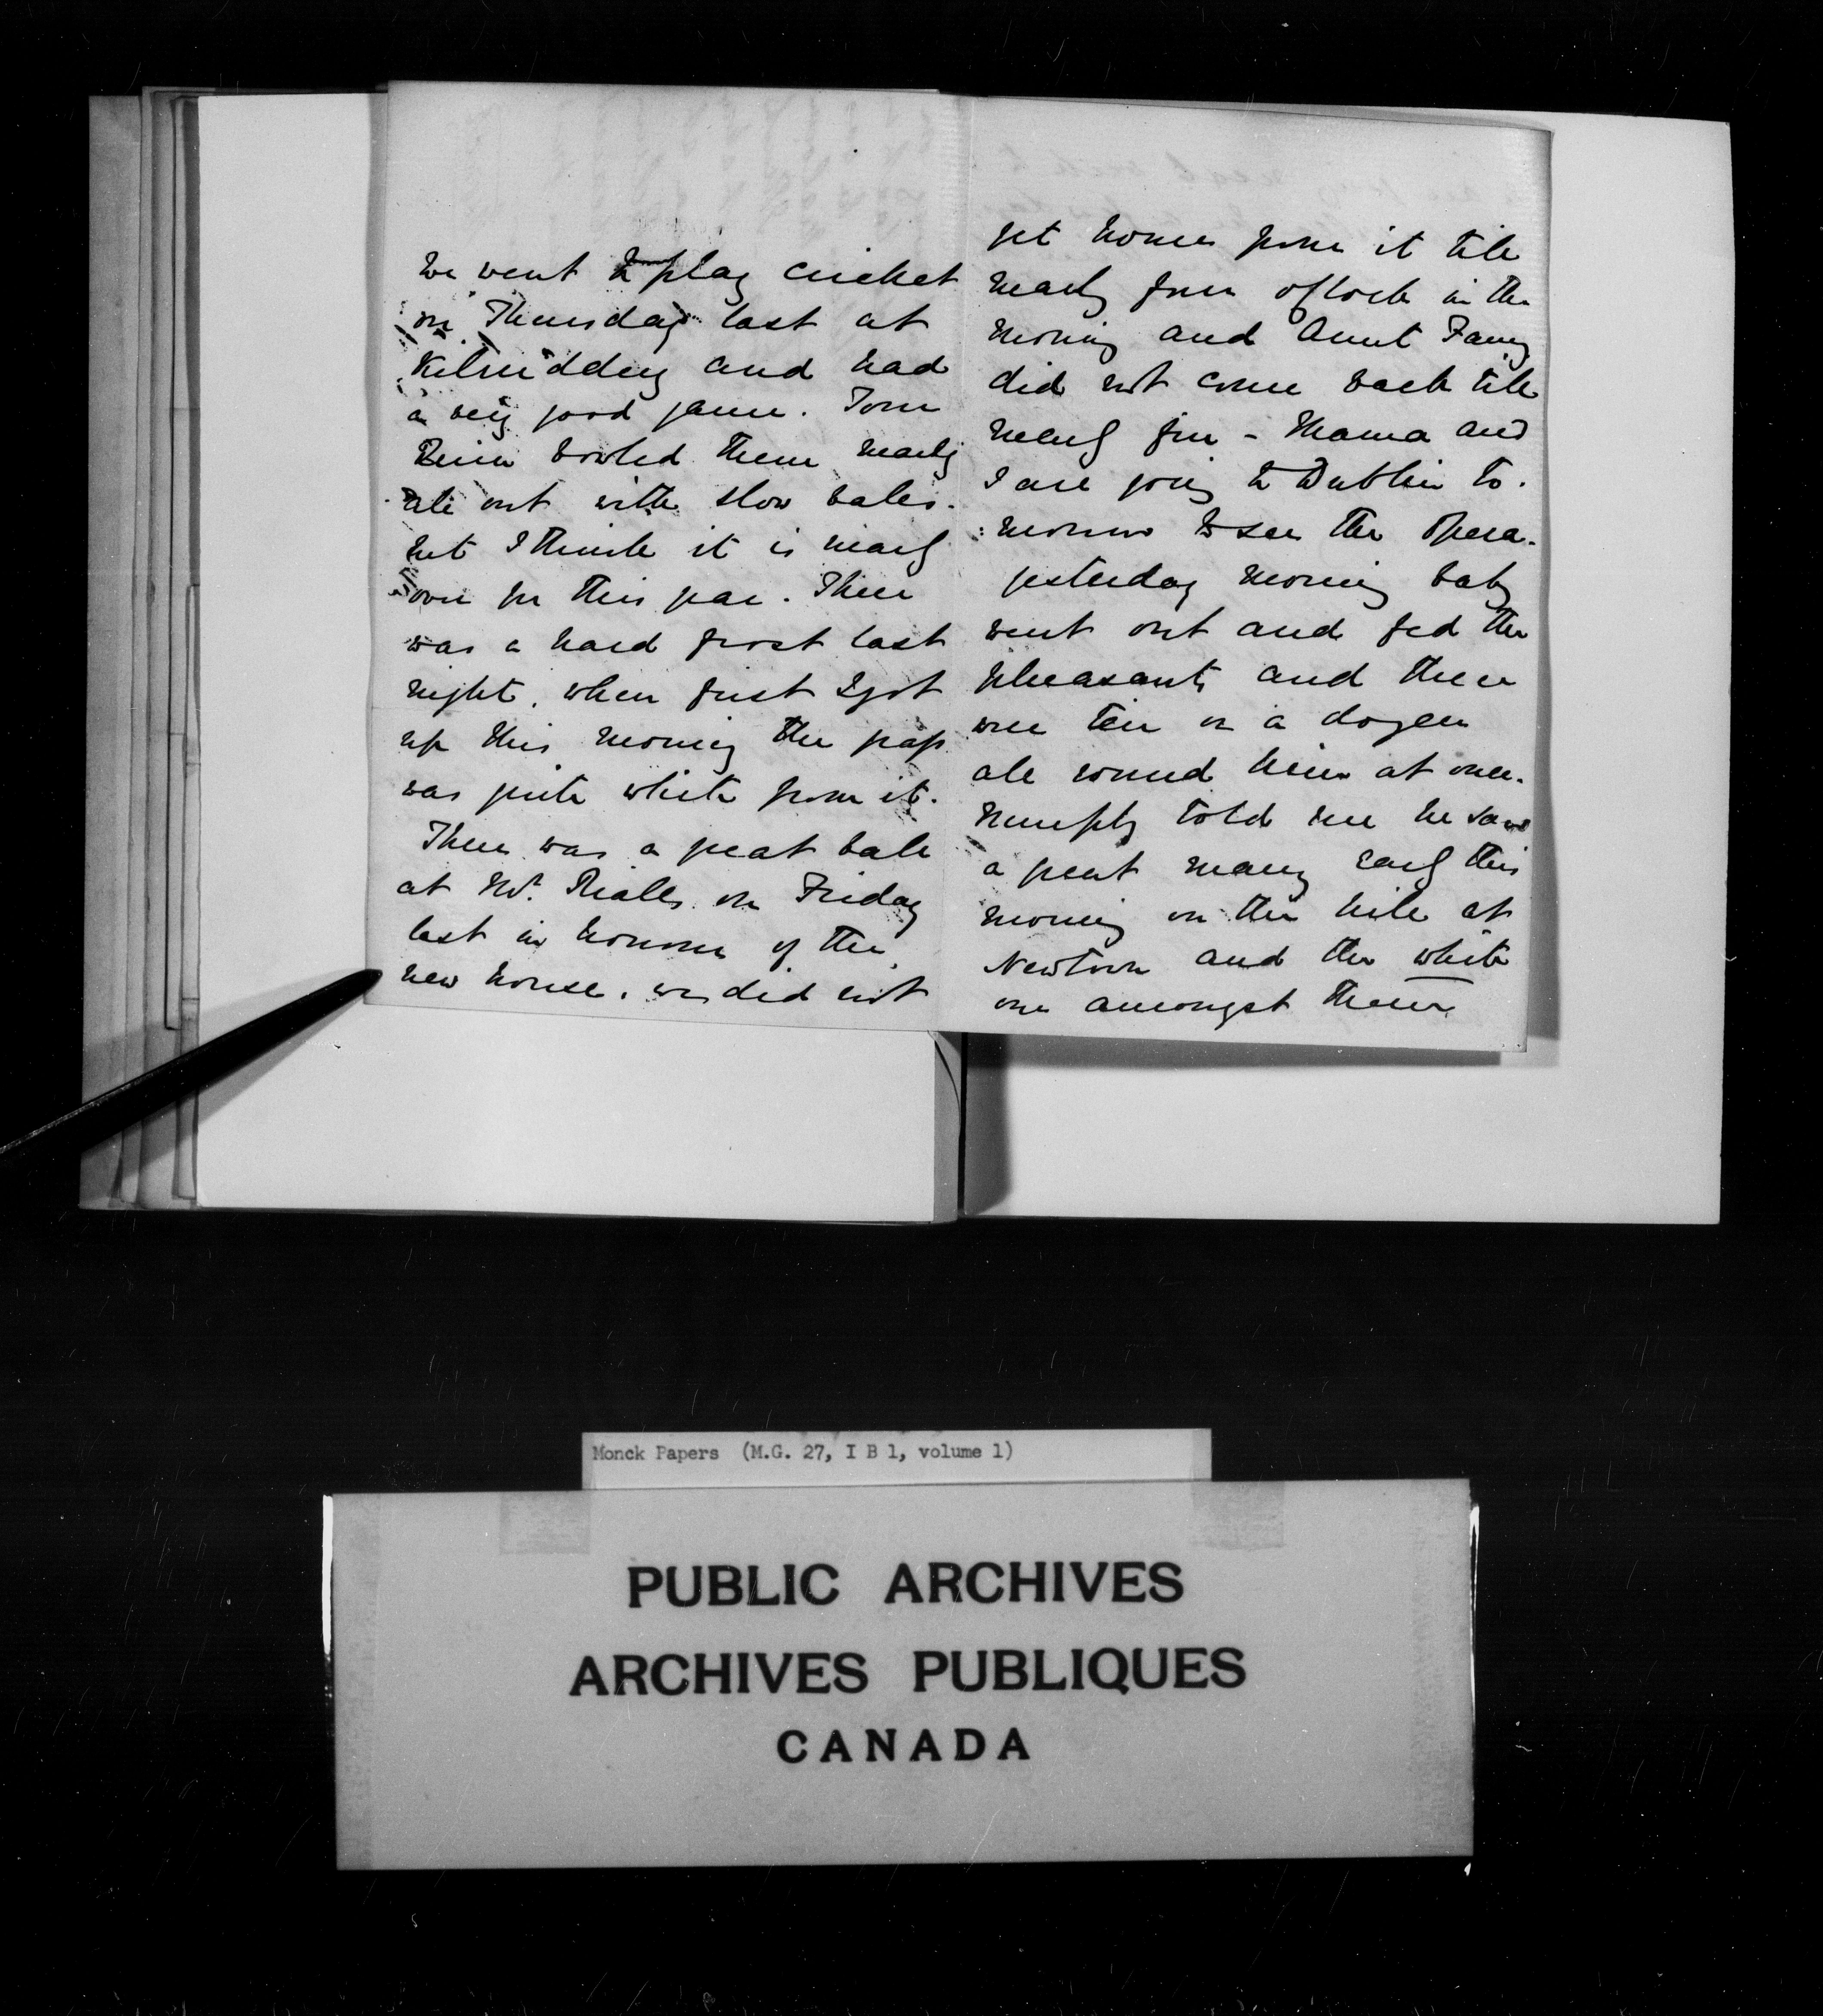 we went to play cricket
on Thursday last at
Kilruddery and had
a very good game. Tom
bowled them nearly
all out with slow balls.
but I think it is nearly
over for this year. There
was a hard frost last
night. when first I got
up this morning the grass
was quite white from it.
There was a great ball
at Mr. Rialls on Friday
last in honour of the
new house. we did not
get home from it till
nearly four oflock in the
morning and Aunt Fanny
did not come back till
nearly five - Mama and
I are going to Dublin to.
morrow to see the Opera.
yesterday morning baby
went out and fed the
pheasants and there
were ten or a dozen
all round him at once.
told me he saw
a great many early this
morning on the hill at
Newtown and the white
one amongst them
Monck Papers (M.G. 27, I B 1, volume 1)
PUBLIC ARCHIVES
ARCHIVES PUBLIQUES
CANADA